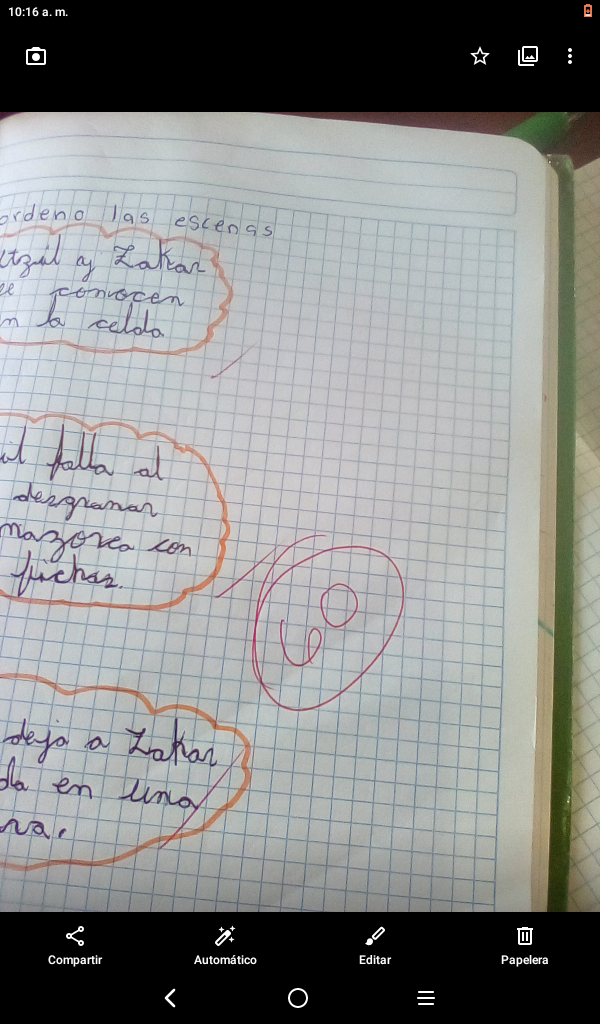 10:16 a. m.
ordeno las escenas
itzul y Zakar
se conocen
en la celda
falla al
desgranar
mazorca con
fuchas.
60
deja a Zakar
en una
Compartir Automático Editar Papelera